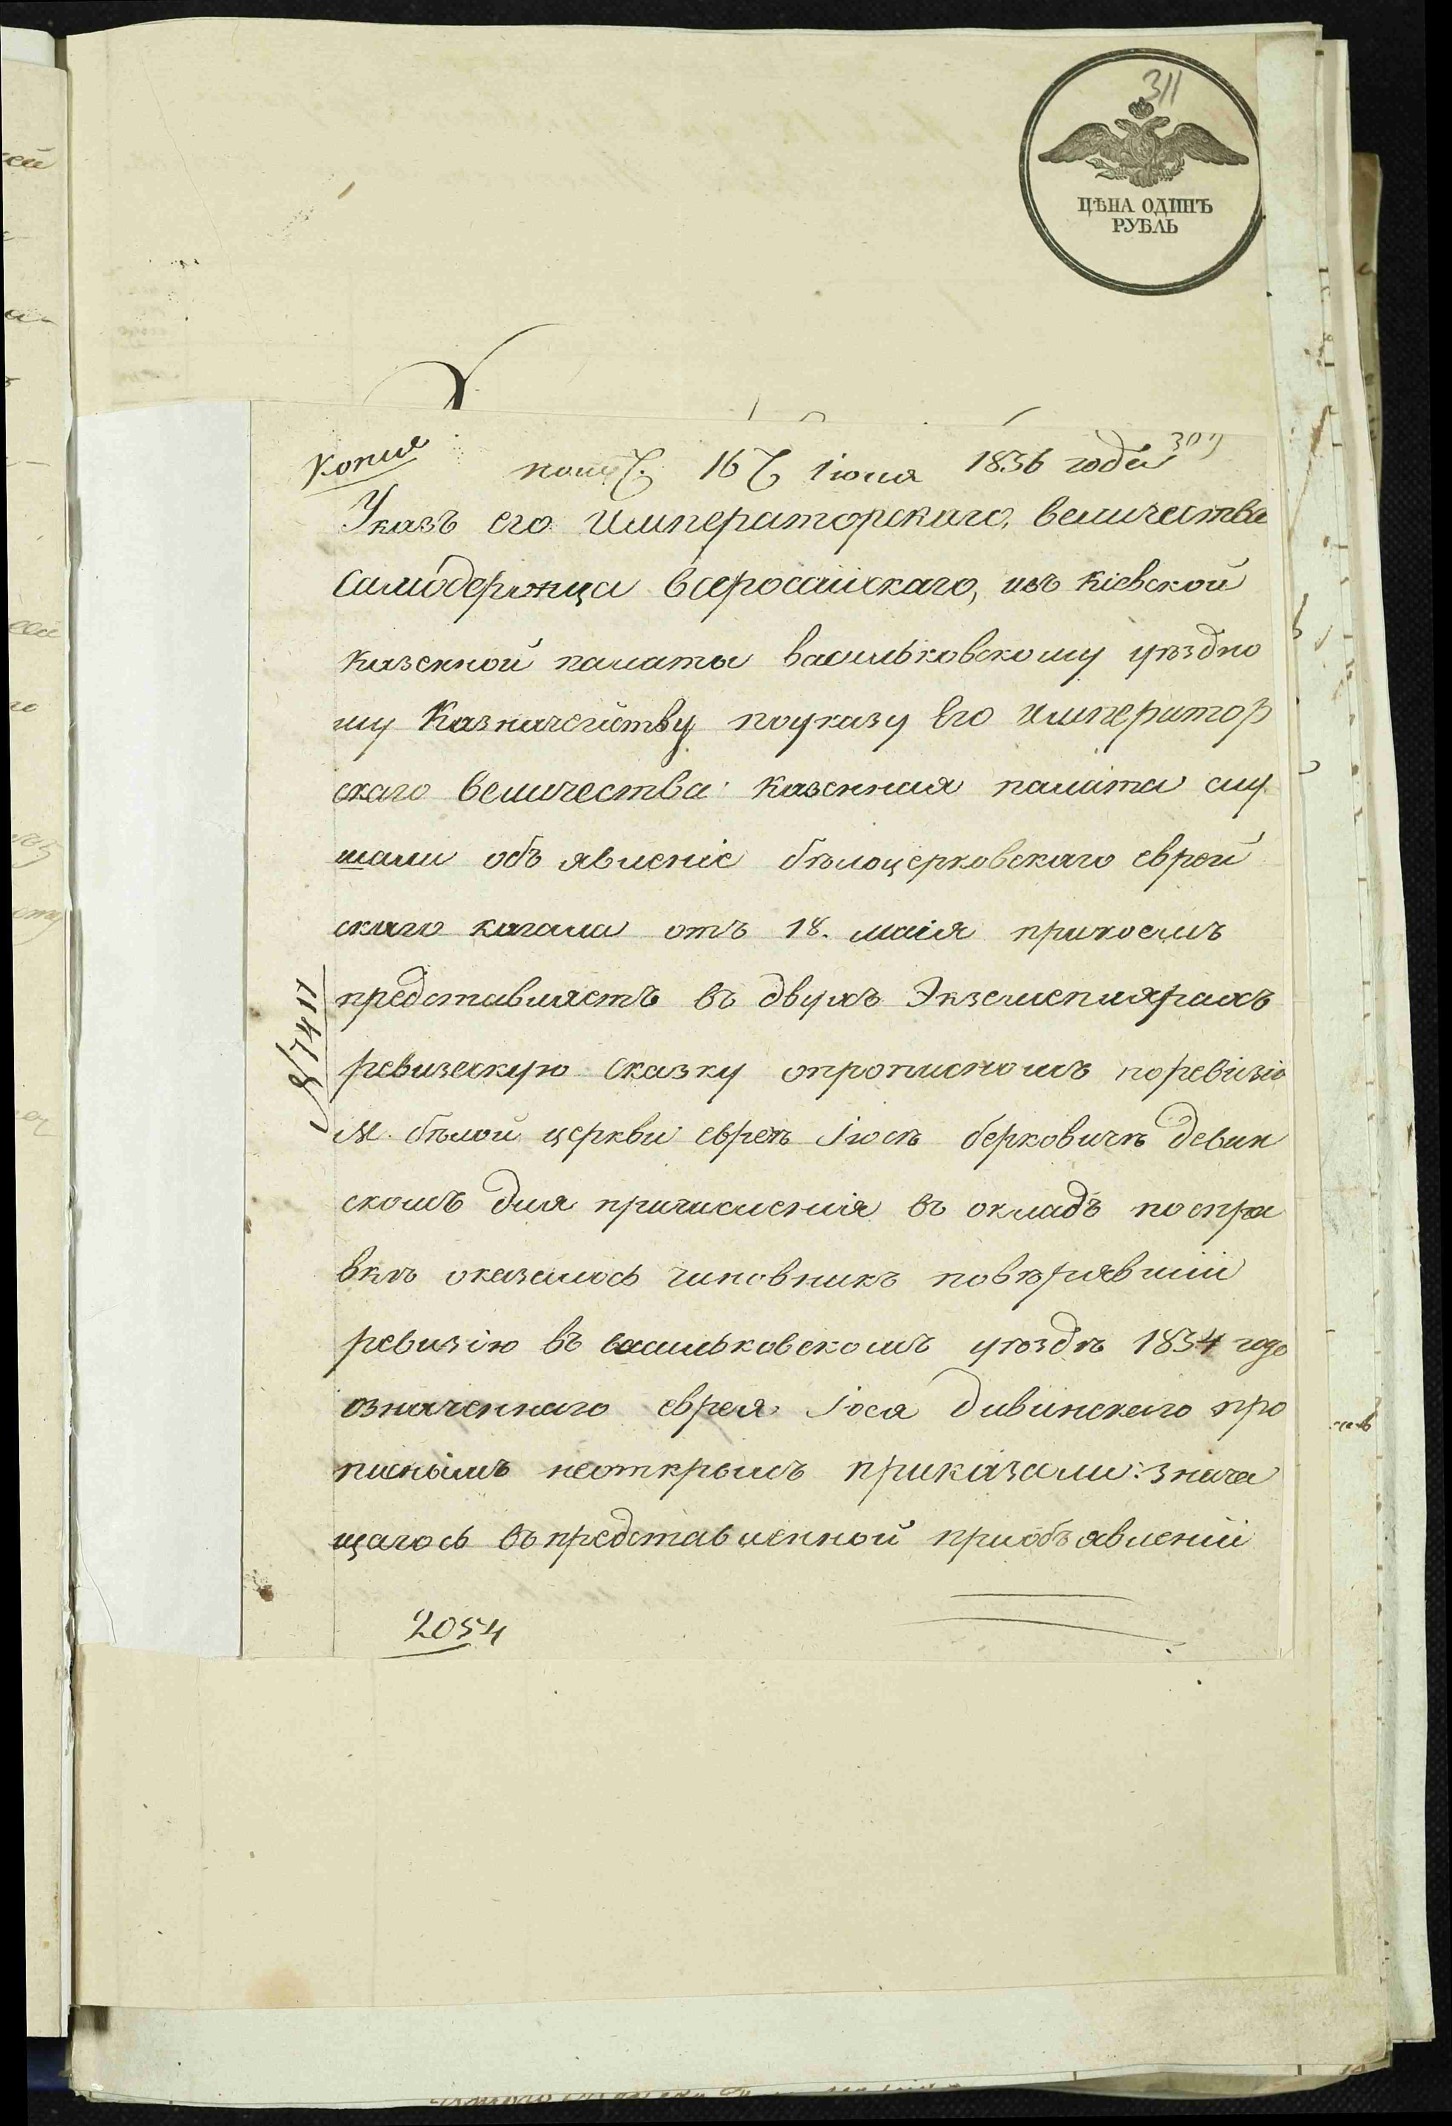 311
ЦѢНА ОДИНЪ
РУБЛЬ
Копия
309
получ. 16 Іюня 1836 года
Указъ его Императорскаго, величества
Самодержца всеросаийскаго, изъ Кіевской
Казенной палаты васильковскому уѣздно
му Казначейству поуказу Его Император
скаго величества Казенная палата слу
шали объ явленіе бѣлоцерковскаго еврей
скаго кагала отъ 18. маія прикоемъ
представляетъ въ двухъ Экземплярахъ
№ 17411
ревизскую сказку опрописномъ поревізіи
М. бѣлой церкви евреѣ Іюсѣ берковичѣ девин
скомъ для причисленія въ окладъ поспра
вкѣ оказалось чиновникъ повѣрявшій
ревизію въ васильковскомъ уѣздѣ 1834 года
означеннаго еврея Іося Дивинскаго про
писнымъ неоткрылъ приказали: знача
щагось въпредставленной приобъявленіи
2054